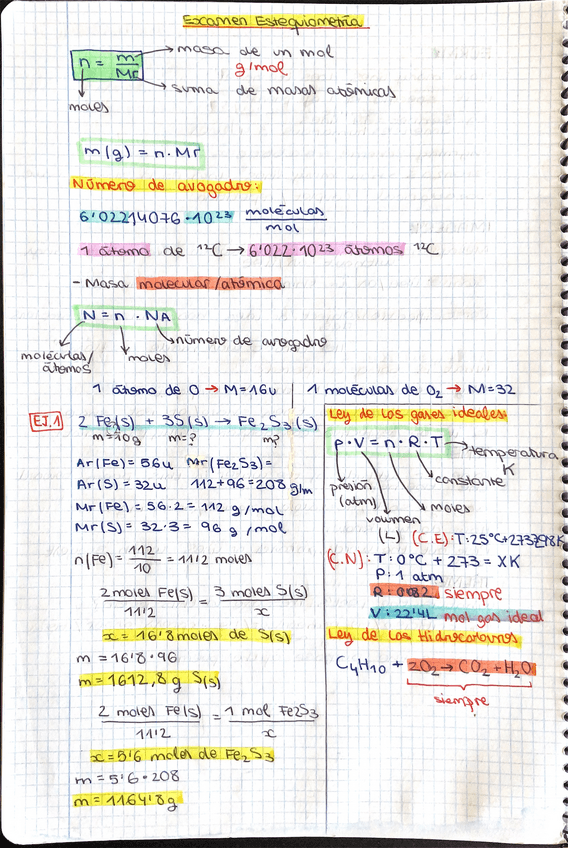 Examen Estequiometría
n = m/Mr → masa de un mol
g/mol
→ suma de masas atómicas
moles
m(g) = n · Mr
Número de avogadro:
6'02214076 · 10²³ moléculas/mol
1 átomo de ¹²C → 6'022·10²³ átomos ¹²C
- Masa molecular/atómica
N = n · NA
número de avogadro
moléculas/átomos
moles
1 átomo de O → M=16u | 1 moléculas de O₂ → M=32
EJ.1 2 Fe(s) + 3S(s) → Fe₂S₃(s)
m=10g m=? m?
Ar(Fe)=56u Mr(Fe₂S₃)=
Ar(S)=32u 112+96=208 g/m
Mr(Fe)=56·2=112 g/mol
Mr(S)=32·3=96 g/mol
n(Fe)=112/10=11'2 moles
2moles Fe(s)/11'2 = 3 moles S(s)/x
x=16'8moles de S(s)
m=16'8·96
m=1612,8g S(s)
2 moles Fe(s)/11'2 = 1 mol Fe₂S₃/x
x=5'6 moles de Fe₂S₃
m=5'6·208
m=1164'8g
Ley de los gases ideales:
P·V=n·R·T → temperatura
K
constante
presión
(atm)
moles
volumen
(L)
(C.E):T:25°C+273=298K
(C.N):T:0°C+273=XK
P:1 atm
R:0'082 siempre
V:22'4L mol gas ideal
Ley de los Hidrocarburos
C₄H₁₀ + 2O₂ → CO₂ + H₂O
siempre